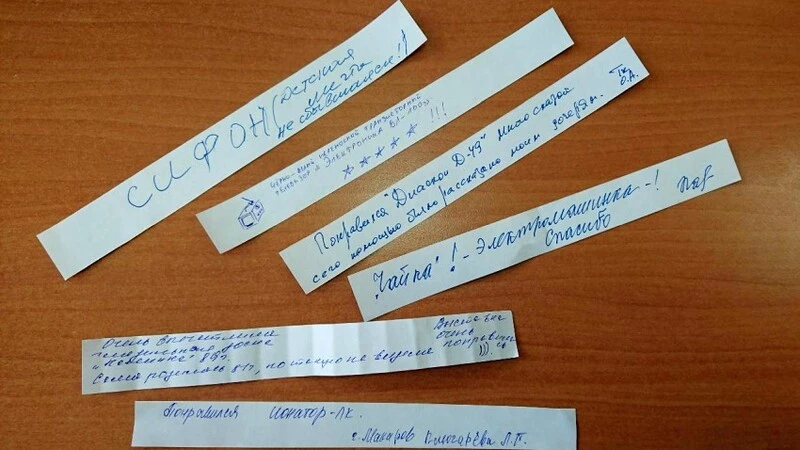 СИФОН (детская
мечта
несбывшаяся!)
Чёрно-белый переносной транзисторный
телевизор "Электроника ВЛ-100"
★ ★ ★ ★ ★ !!!
Понравился "Диаскоп Д-49" много сказок
с его помощью было рассказано моим дочерям.
О.А.
"Чайка"! - Электромашинка-!
Спасибо
Очень впечатлила
гладильная доска
89г.
Сама родилась 81г, но такую не видела
Выставка
очень
понравилась
)))
Понравился Ионатор-ЛК.
с. Макаров Л.П.